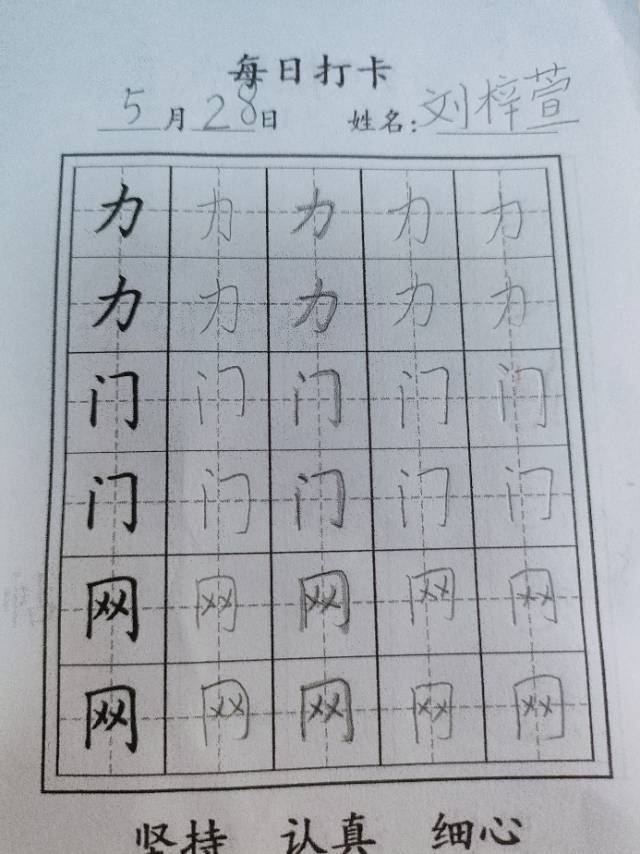 每日打卡
5月28日 姓名:刘梓萱
力力力力力
力力力力力
门门门门门
门门门门门
网网网网网
网网网网网
坚持 认真 细心